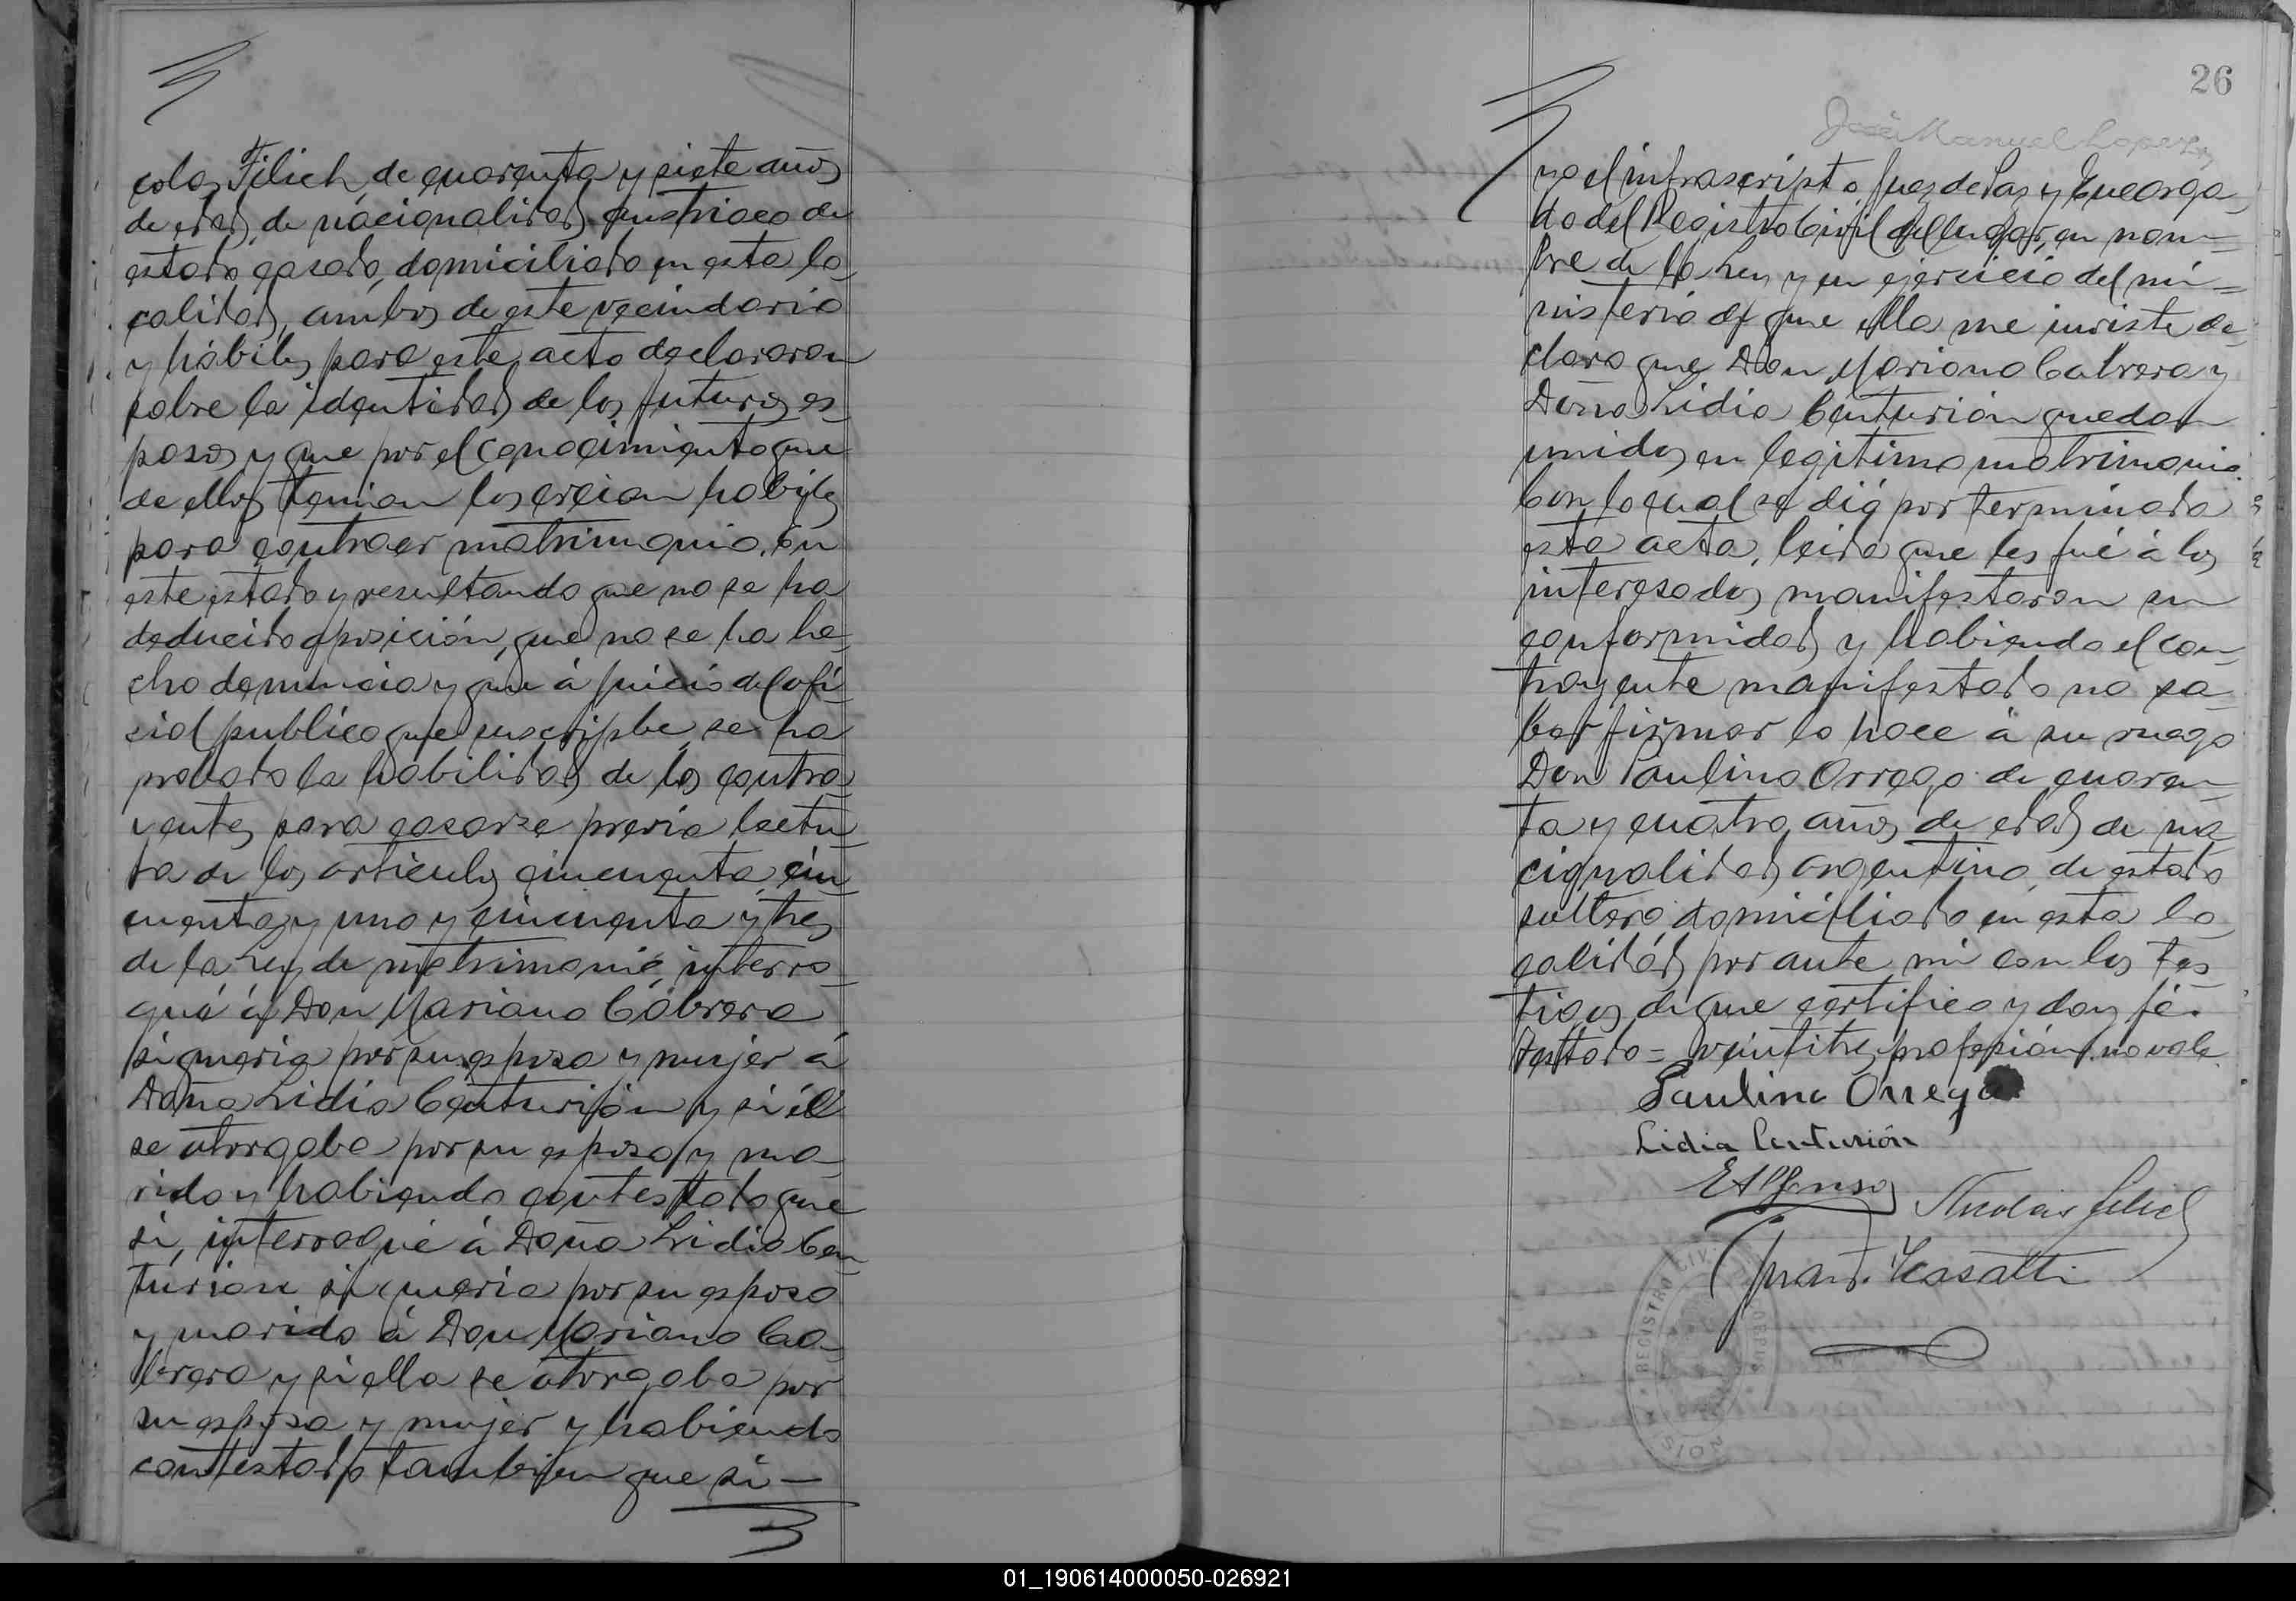 colas Filich, de quarenta y siete años
de edad, de nacionalidad austriaco de
estado casado, domiciliado en esta lo
calidad, ambos de este vecindario
y hábiles para este acto declararon
sobre la identidad de los futuros es
posos y que por el conocimiento que
de ellos tenian los creian habiles
para contraer matrimonio. En
este estado y resultando que no se ha
deducido oposición, que no se ha he
cho denuncia y que á juicio del ofi
cial publico que suscripbe se ha
probado la habilidad de los contra
yentes para casarse previa lectu
ra de los articulos cincuenta, cin
cuenta y uno y cincuenta y tres
de la Ley de matrimonio, interro
gué á Don Mariano Cabrera
si queria por su esposa y mujer á
Doña Lidia Centurión y si él
se otorgaba por su esposo y ma
rido y habiendo contestado que
si, interrogué á Doña Lidia Cen
turión si queria por su esposo
y marido á Don Mariano Ca
brera y si ella se otorgaba por
su esposa y mujer y habiendo
contestado tambien que si—
26
José Manuel Lopez
yo el infrascripto Juez de Paz y Encarga
do del Registro Civil del lugar, en nom=
bre de la Ley y en ejercicio del mi=
nisterio de que ella me inviste de
claro que Don Mariano Cabrera y
Doña Lidia Centurión quedan
unidos en legitimo matrimonio
Con lo cual se dió por terminada
esta acta, leida que les fué á los
interesados manifestaron su
conformidad y habiendo el con
trayente manifestado no sa
ber firmar lo hace á su ruego
Don Paulino Orrego de cuaren
ta y cuatro años de edad de na
cionalidad argentino, de estado
soltero, domiciliado en esta lo
calidad, por ante mi con los tes
tigos de que certifico y doy fé.
Testado = veintitres, profesión, no vale
Paulino Orrego
Lidia Centurión
E Alfonso
Nicolas Filich
Juan F. Casatti
REGISTRO CIVIL
CORPUS
01_190614000050-026921